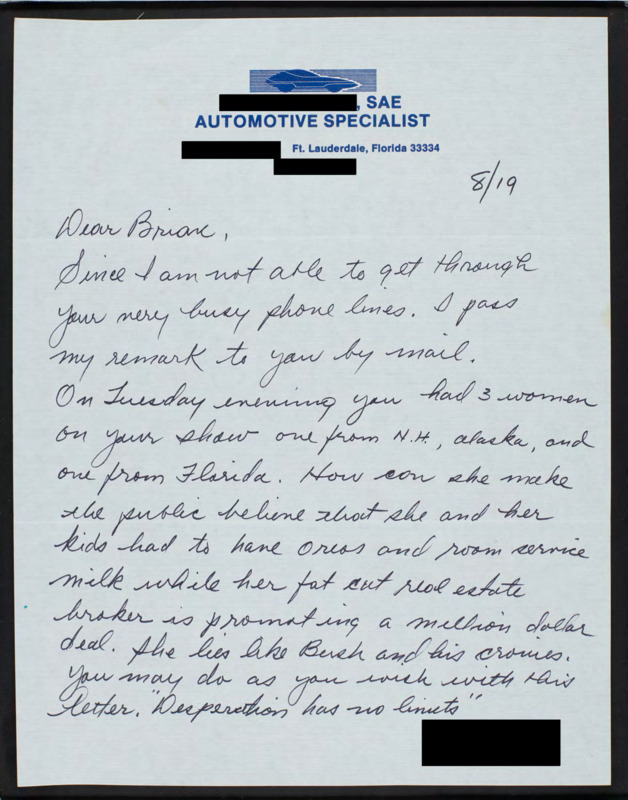 , SAE
AUTOMOTIVE SPECIALIST
Ft. Lauderdale, Florida 33334
8/19
Dear Brian,
Since I am not able to get through
your very busy phone lines. I pass
my remark to you by mail.
On Tuesday evening you had 3 women
on your show one from N.H., alaska, and
one from Florida. How can she make
the public believe that she and her
kids had to have Oreos and room service
milk while her fat cat real estate
broker is promoting a million dollar
deal. She lies like Bush and his cronies.
You may do as you wish with this
letter. "Desperation has no limits"